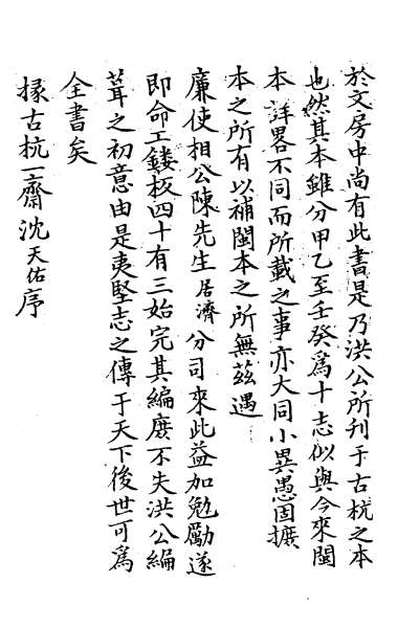 於文房中尚有此書是乃洪公所刊于古杭之本
也然其本雖分甲乙至壬癸爲十志似與今來閩
本詳畧不同而所載之事亦大同小異愚因擴
本之所有以補閩本之所無兹遇
廉使相公陳先生居濟分司來此益加勉勵遂
即命工鏤板四十有三始完其編庻不失洪公編
葺之初意由是夷堅志之傳于天下後世可爲
全書矣
掾古杭一齋沈天佑序